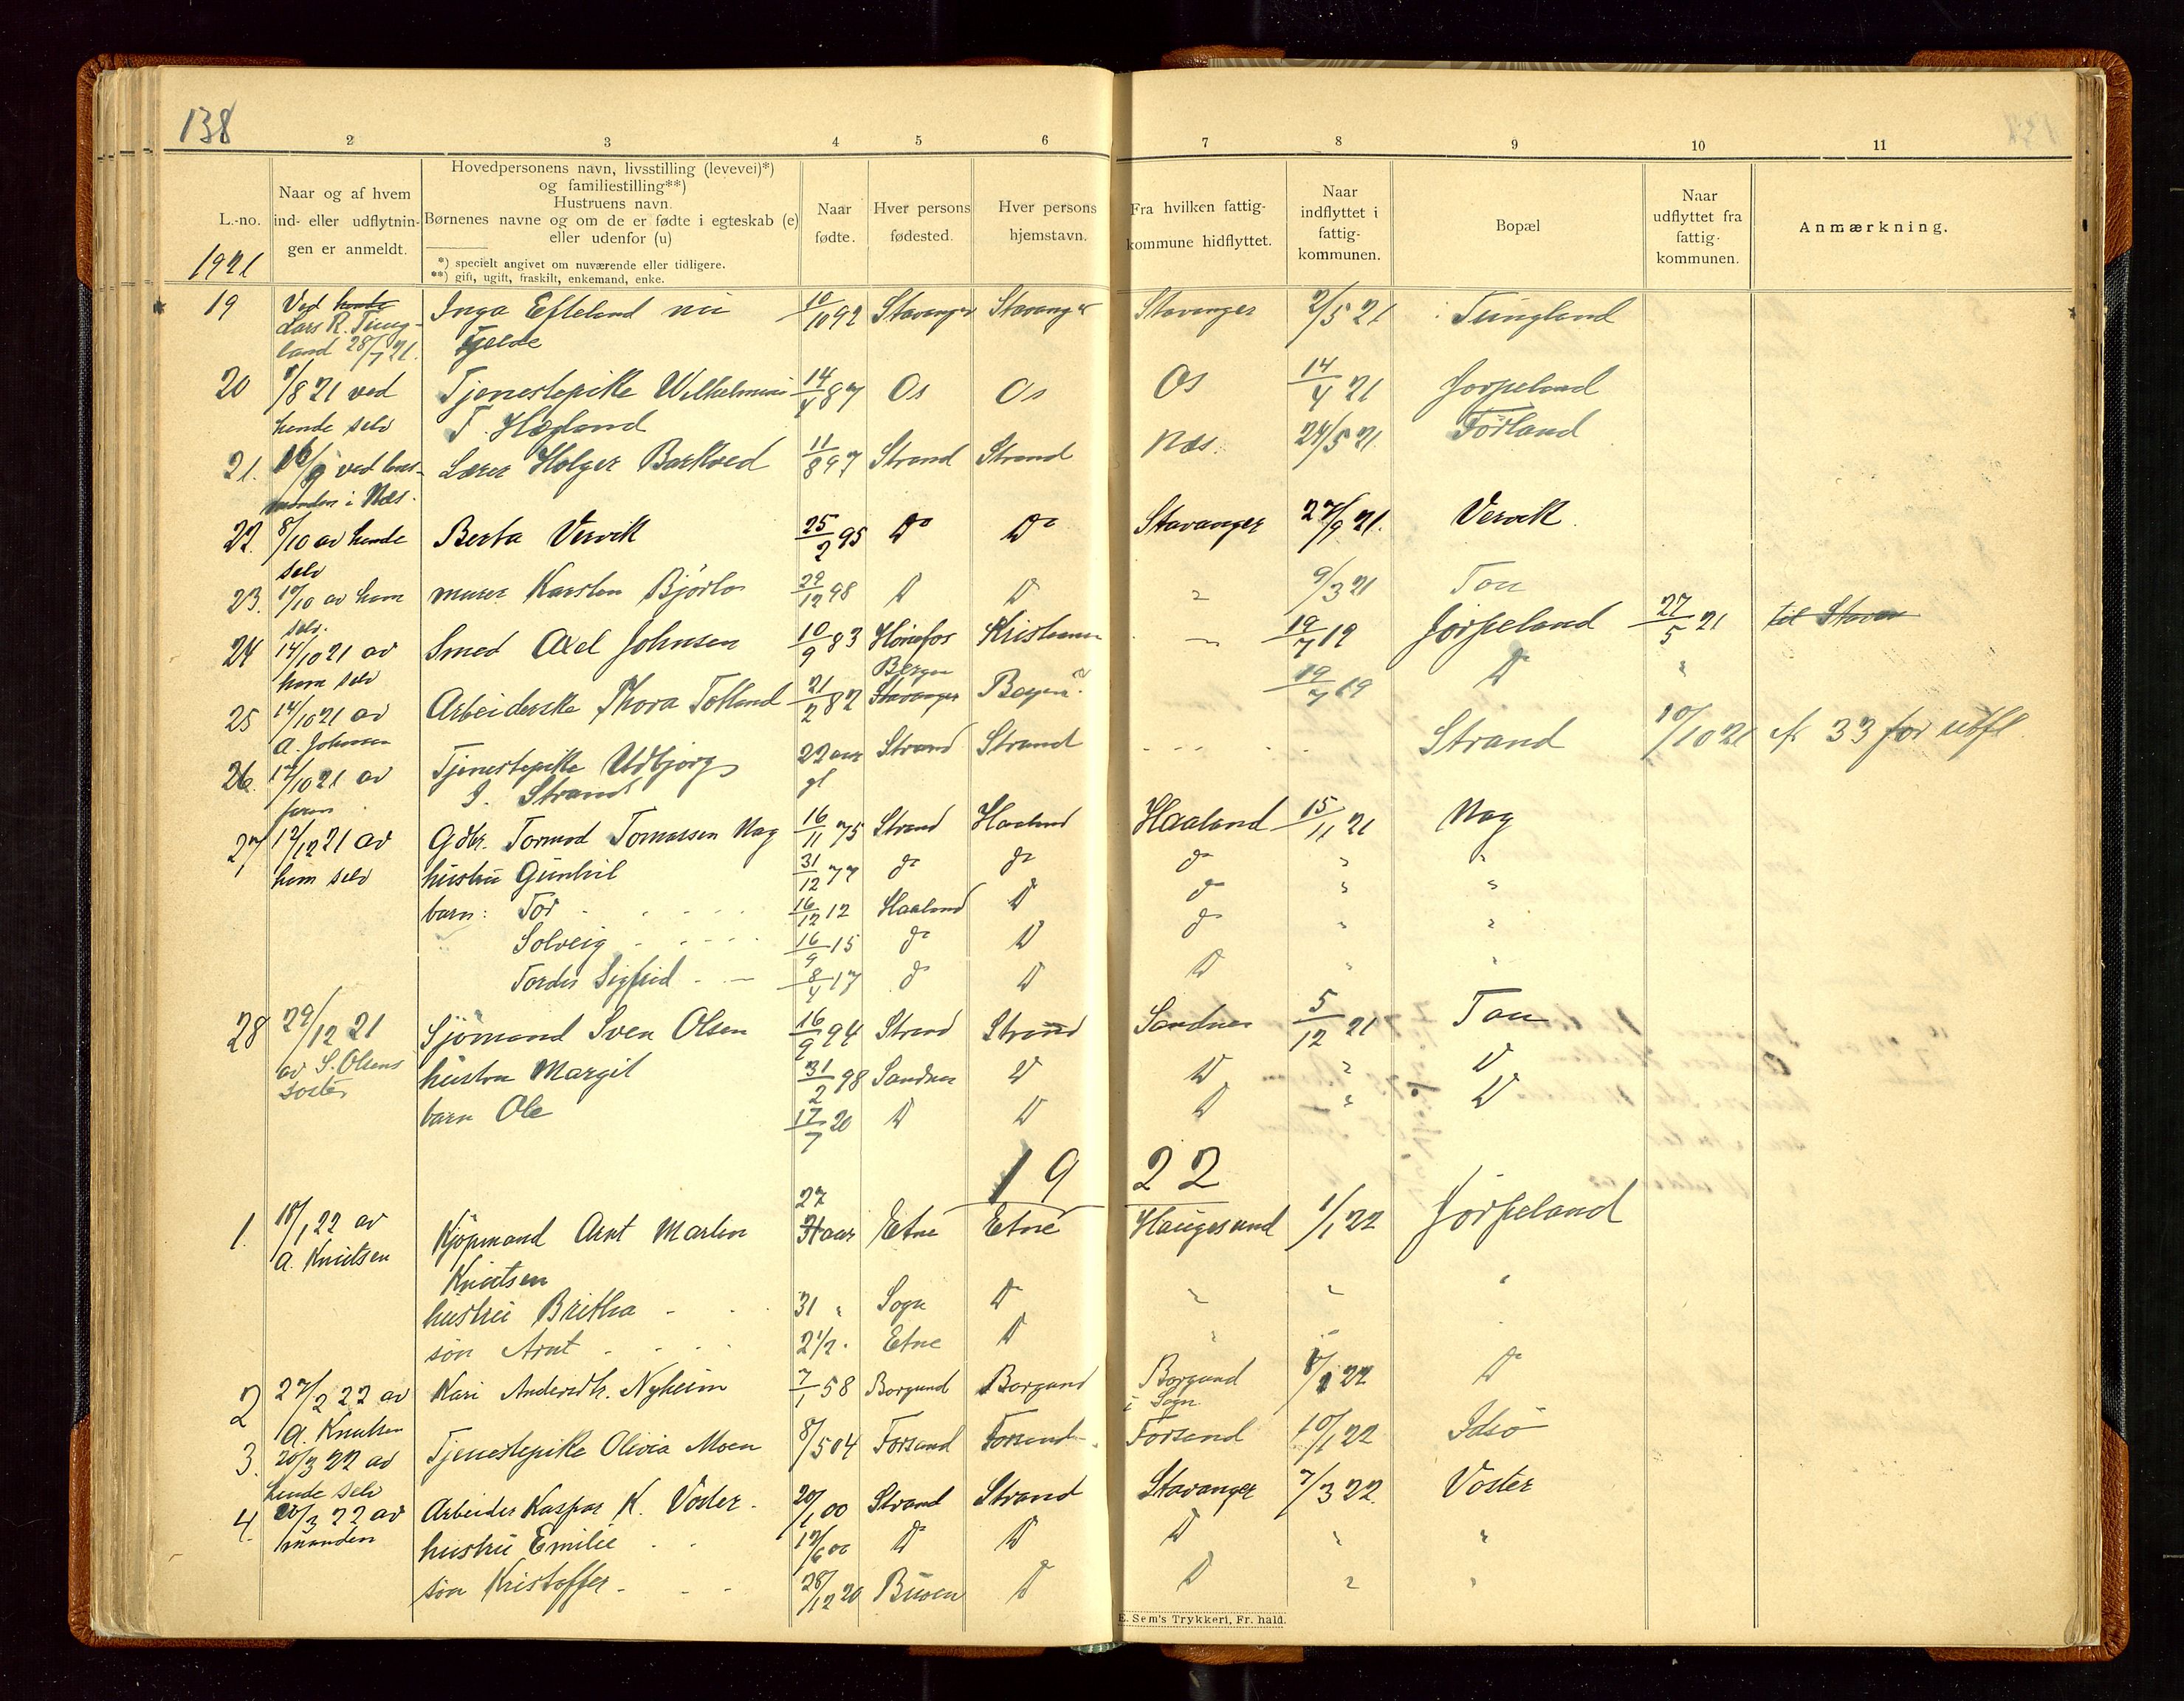 138
2 3 4 5 6 7 8 9 10 11
L.-no.
1921
Naar og af hvem
ind- eller udflytnin-
gen er anmeldt.
Hovedpersonens navn, livsstilling (levevei)*)
og familiestilling**)
Hustruens navn.
Børnenes navne og om de er fødte i egteskab (e)
eller udenfor (u)
*) specielt angivet om nuværende eller tidligere.
**) gift, ugift, fraskilt, enkemand, enke.
Naar
fødte.
Hver persons
fødested.
Hver persons
hjemstavn.
Fra hvilken fattig-
kommune hidflyttet.
Naar
indflyttet i
fattig-
kommunen.
Bopæl
Naar
udflyttet fra
fattig-
kommunen.
Anmærkning.
19 Ved hende Inga Efteland nu 10/10 92 Stavanger Stavanger Stavanger 2/5 21 Tungland
Lars R. Tung-
land 28/7 21. Tjelde
20 /8 21 ved Tjenestepike Wilhelmine 14/4 87 Os Os Os 14/4 21 Jørpeland
hende selv T. Høgland
21. 16/9 ved lens- Lærer Holger Barkved 11/8 97 Strand Strand Næs. 24/5 21. Førland
manden i Næs.
22. 8/10 av hende Berta Vervik 25/2 95 Do Do Stavanger 27/9 21. Vervik.
selv
23. 10/10 av ham murer Karsten Bjørlo 29/12 98 Do Do " 9/3 21 Tou
selv.
24 14/10 21 av Smed Axel Johnsen 10/9 83 Hønefos Kristiania " 19/7 19 Jørpeland 27/5 21 til Stavan
ham selv Bergen
25 14/10 21 av Arbeiderske Thora Totland 21/2 82 Stavanger Bergen? 19/7 19 Do "
A. Johnsen
26. 14/10 21 av Tjenestepike Udbjørg 22 aar Strand Strand Strand 10/10 21 cfr 33 for utfl.
faren J. Strand gl
27 12/12 21 av Gdbr. Tormod Tomassen Nag 16/11 75 Strand Haaland Haaland 15/11 21 Nag
ham selv hustru Gunhil 31/12 77 do do do " "
barn: Tor 16/12 12 Haaland Do do " "
Solveig 16/9 15 do Do do " "
Tordis Sigfrid 8/4 17 do Do Do " "
28 29/12 21 Sjømand Sven Olsen 16/9 94 Strand Strand Sandnes 5/12 21 Tou
av S. Olsens hustru Margit 31/2 98 Sandnes Do Do " Do
søster barn Ole 17/7 20 Do Do Do " Do
1922
27
1. 10/1 22 av Kjøpmand Arnt Martin 31 aar Etne Etne Haugesund 1/1 22 Jørpeland
A. Knutsen Knutsen
hustru Britha 31 " Sogn Do " " "
søn Arnt 2 1/2. Etne Do "
2 27/2 22 av Kari Andersdtr. Nyheim 7/1 58 Borgund Borgund Borgund 8/1 22 Do
A. Knutsen i Sogn
3. 20/3 22 av Tjenestepike Olivia Moen 8/5 04 Forsand Forsand Forsand 10/1 22 Idsø
hende selv
4. 20/3 22 av Arbeider Kaspar K. Voster 20/1 00 Strand Strand Stavanger 7/3 22. Voster
manden hustru Emilie 12/6 00 Do Do Do " "
søn Kristoffer 28/12 20 Buøen Do Do " "
E. Sem's Trykkeri, Fr. hald.